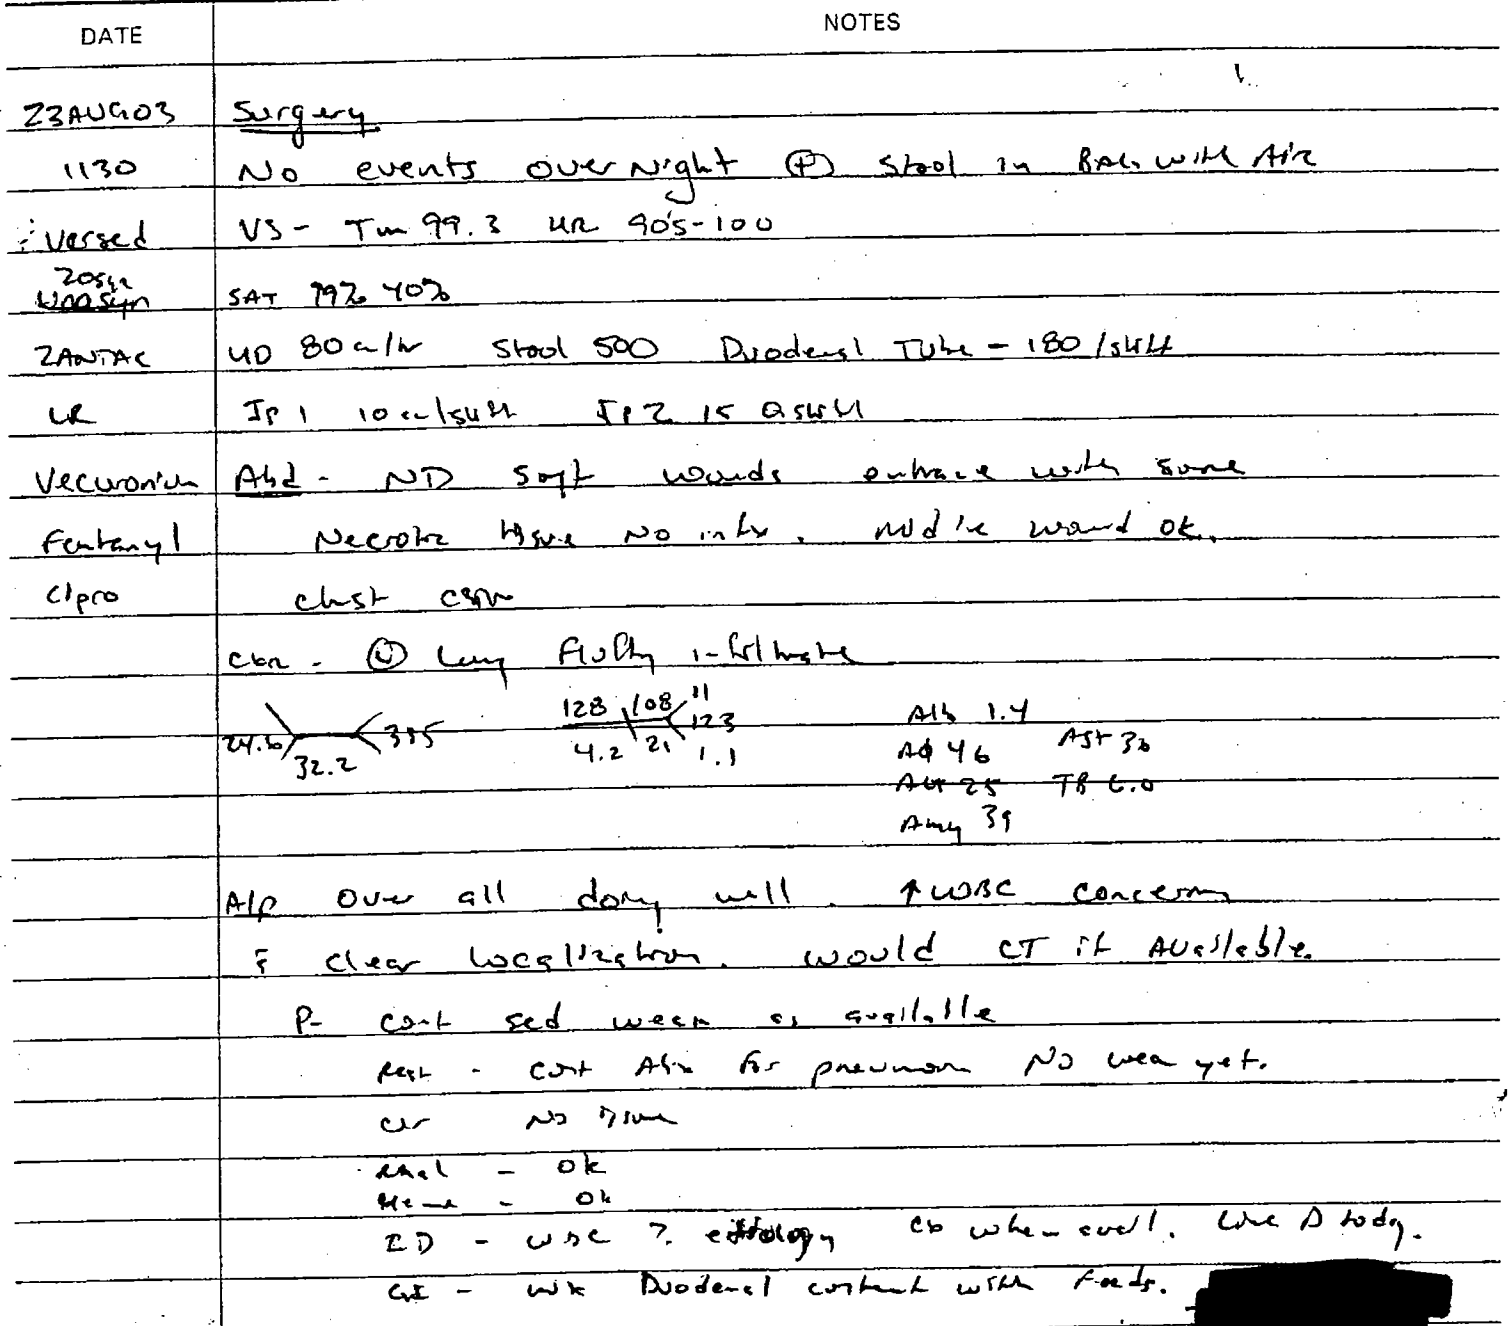 DATE NOTES
23AUG03 Surgery
1130 No events over night ⊕ stool in BAG with Air
Versed VS - Tm 99.3 HR 90's-100
Zosyn
Unasyn SAT 99% 40%
ZANTAC UO 80cc/hr Stool 500 Duodenal Tube - 180/shift
LR JP 1 10cc/shift JP 2 15 Q shift
Vecuronium Abd - ND soft wounds entrance with some
Fentanyl Necrotic tissue No infx. midline wound ok.
Cipro chest
CXR - Lung Fluffy infiltrate
128 108 11
385 123
32.2 4.2 21 1.1
Alb 1.4
AΦ 46 AST 36
Alt 25 TB 6.0
Amy 39
A/P Over all doing well. ↑WBC concerning
clear localization. would CT if Available.
P- cont sed wean as available
Resp - cont Abx for pneumon No wean yet.
No issue
Renal - ok
Heme - ok
ID - WBC ? etiology when avail. Line Δ today.
GI - Duodenal content with Feeds.